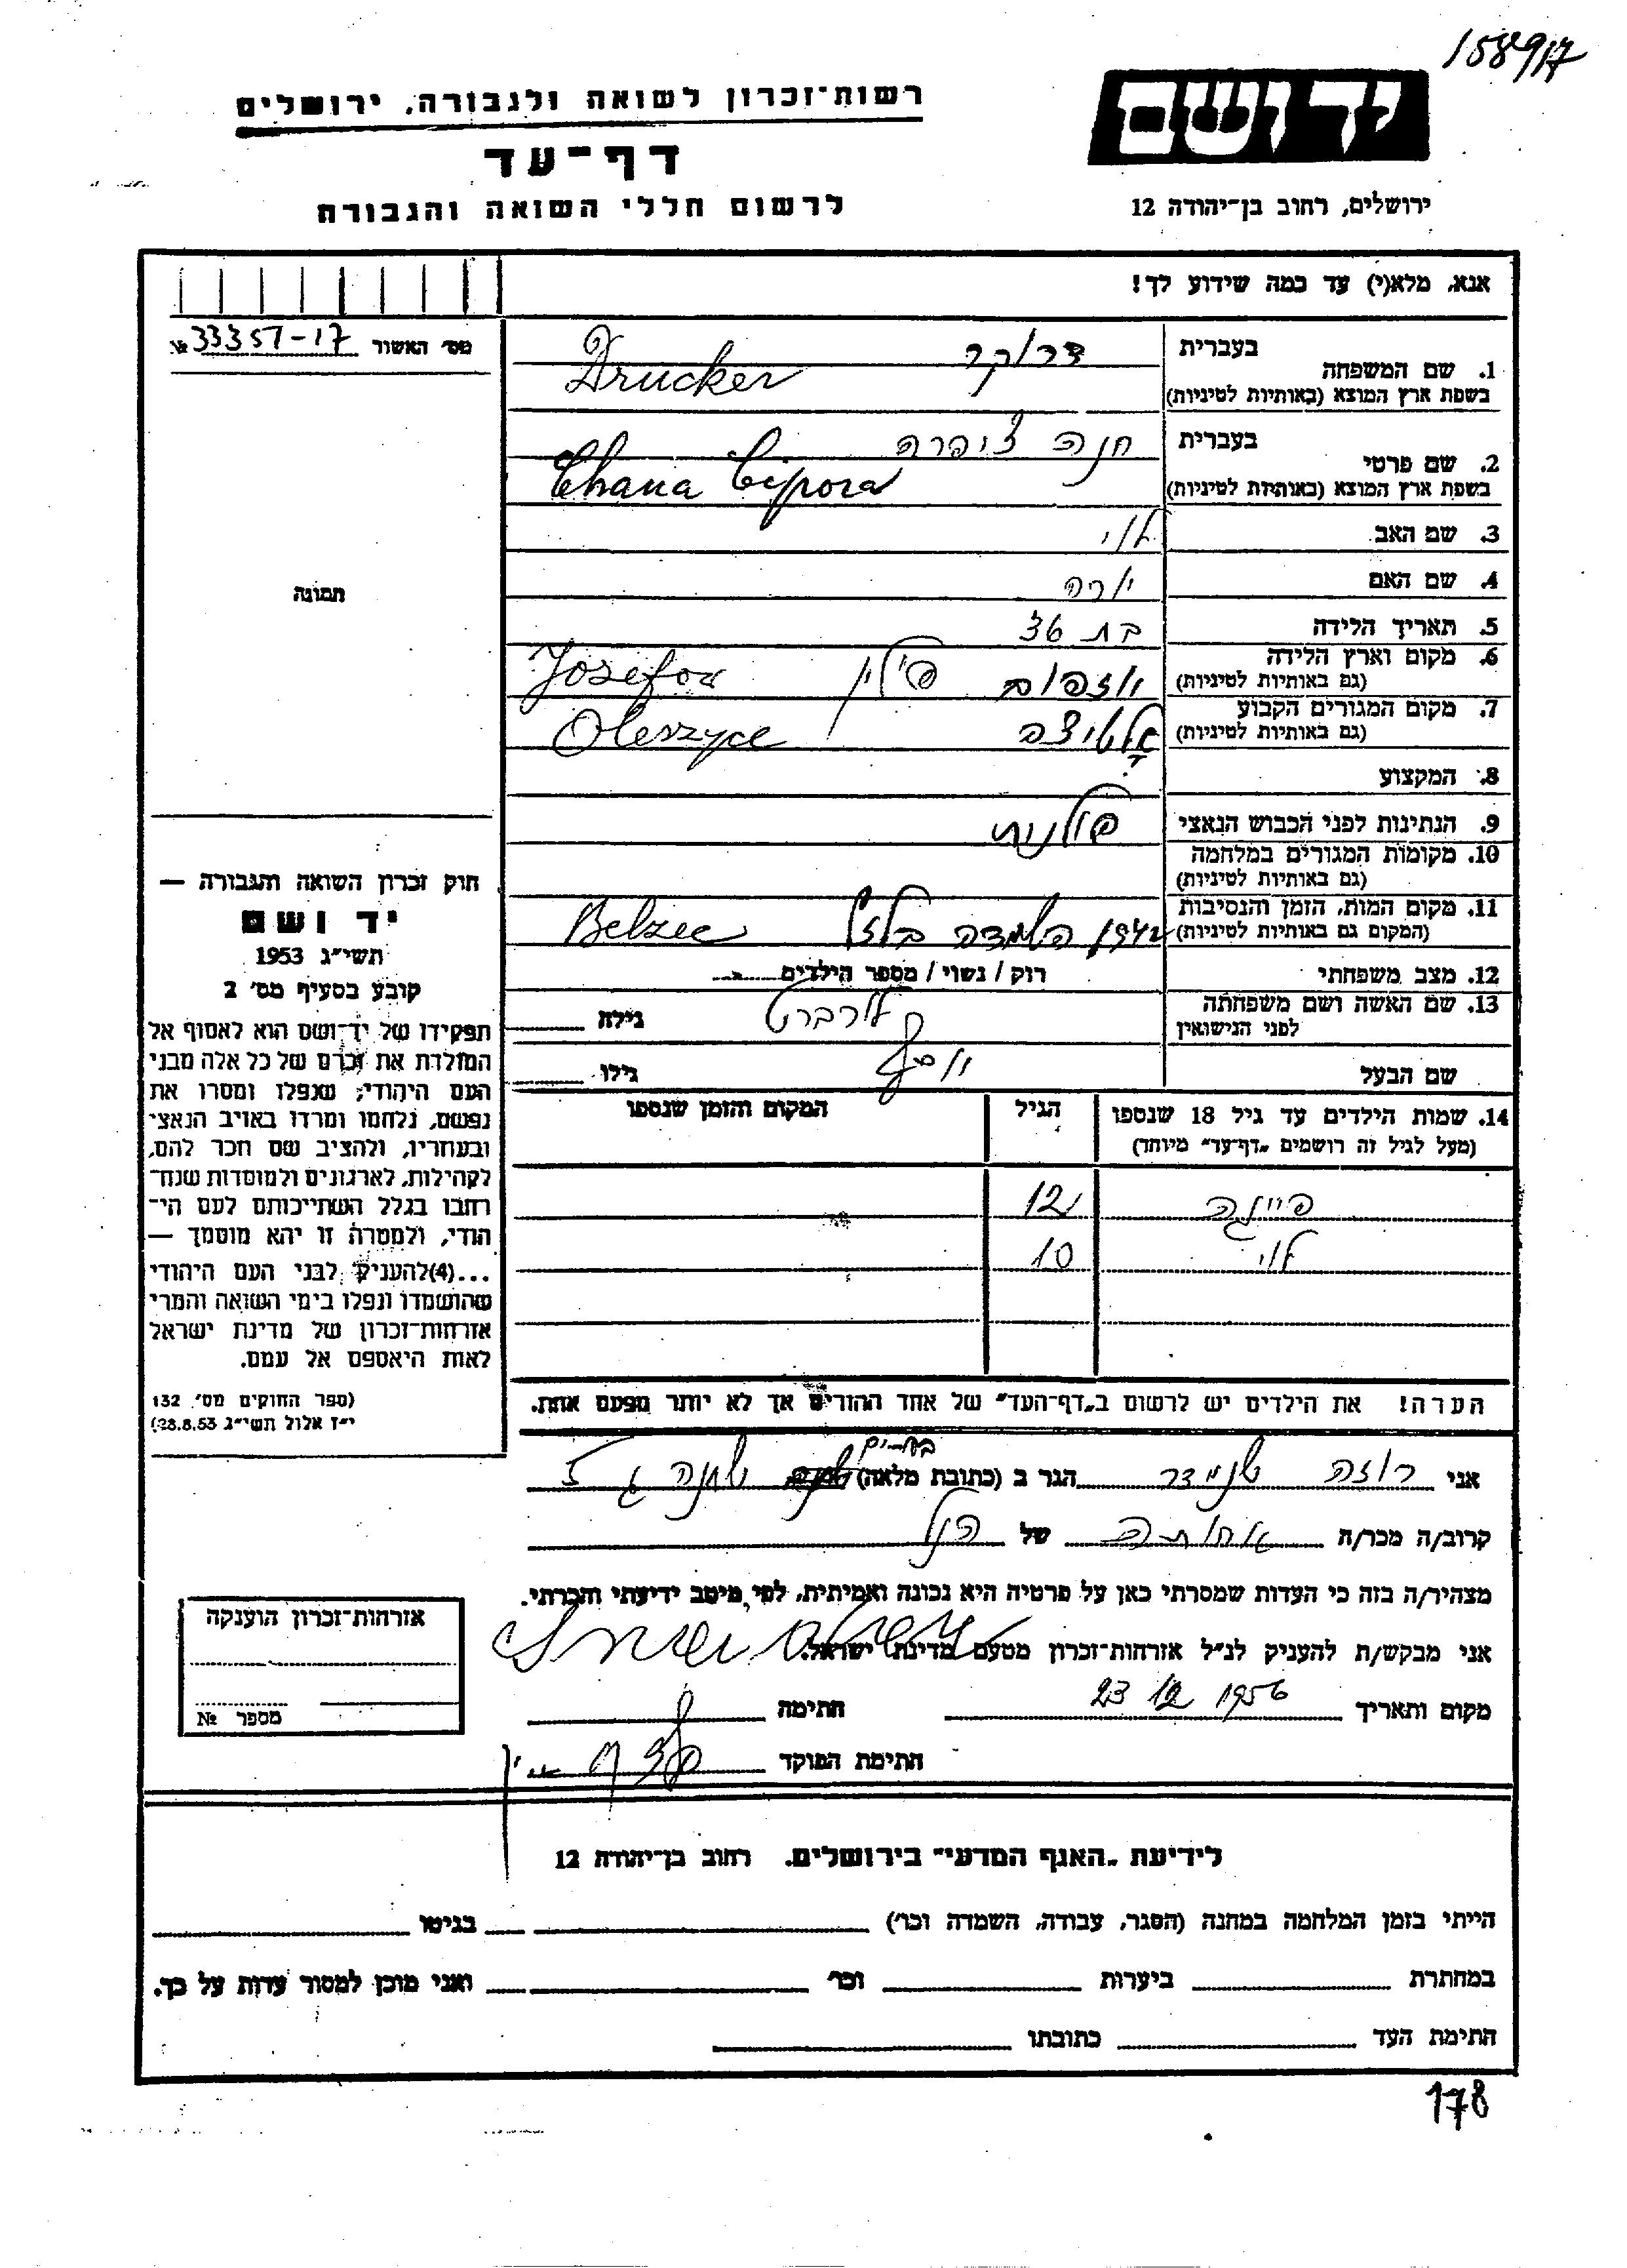 158917
יד ושם
רשות־זכרון לשואה ולגבורה, ירושלים
דף־עד
לרשום חללי השואה והגבורה
ירושלים, רחוב בן־יהודה 12
אנא, מלא(י) עד כמה שידוע לך!
מס' האשור № 33357-17
בעברית דרוקר
1. שם המשפחה
בשפת ארץ המוצא (באותיות לטיניות) Drucker
בעברית חנה ציפרה
2. שם פרטי
בשפת ארץ המוצא (באותיות לטיניות) Chana Cipora
3. שם האב לוי
4. שם האם
5. תאריך הלידה בת 36
6. מקום וארץ הלידה
(גם באותיות לטיניות) יוזפוב פולין Josefow
7. מקום המגורים הקבוע
(גם באותיות לטיניות) Oleszyce
8. המקצוע
9. הנתינות לפני הכבוש הנאצי פולנית
10. מקומות המגורים במלחמה
(גם באותיות לטיניות)
11. מקום המות, הזמן והנסיבות
(המקום גם באותיות לטיניות) 1942 השמדה בלזץ Belzec
12. מצב משפחתי רוק / נשוי / מספר הילדים
13. שם האשה ושם משפחתה
לפני הנישואין גילה
שם הבעל יוסף גילו
14. שמות הילדים עד גיל 18 שנספו
(מעל לגיל זה רושמים „דף־עד" מיוחד)
הגיל
המקום והזמן שנספו
פייגה 12
לוי 10
הערה! את הילדים יש לרשום ב„דף־העד" של אחד ההורים אך לא יותר מפעם אחת.
תמונה
חוק זכרון השואה והגבורה —
יד ושם
תשי"ג 1953
קובע בסעיף מס' 2
תפקידו של יד־ושם הוא לאסוף אל
המולדת את זכרם של כל אלה מבני
העם היהודי, שנפלו ומסרו את
נפשם, נלחמו ומרדו באויב הנאצי
ובעוזריו, ולהציב שם וזכר להם,
לקהילות, לארגונים ולמוסדות שנח־
רבו בגלל השתייכותם לעם הי־
הודי, ולמטרה זו יהא מוסמך —
...(4)להעניק לבני העם היהודי
שהושמדו ונפלו בימי השואה והמרי
אזרחות־זכרון של מדינת ישראל
לאות היאספם אל עמם.
(ספר החוקים מס' 132
י"ז אלול תשי"ג 28.8.53)
אני רוזה שנידר הגר ב (כתובת מלאה)
קרוב/ה מכר/ה אחותה של הנ"ל
מצהיר/ה בזה כי העדות שמסרתי כאן על פרטיה היא נכונה ואמיתית, לפי מיטב ידיעתי והכרתי.
אני מבקש/ת להעניק לנ"ל אזרחות־זכרון מטעם מדינת ישראל.
מקום ותאריך 23 12 1956 חתימה
חתימת הפוקד
אזרחות־זכרון הוענקה
מספר №
לידיעת „האגף המדעי" בירושלים. רחוב בן־יהודה 12
הייתי בזמן המלחמה במחנה (הסגר, עבודה, השמדה וכו') בגיטו
במחתרת ביערות וכו' ואני מוכן למסור עדות על כך.
חתימת העד כתובתו
178